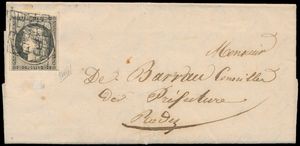 Monsieur
De Barrau Conseiller
de Préfecture
Rodez